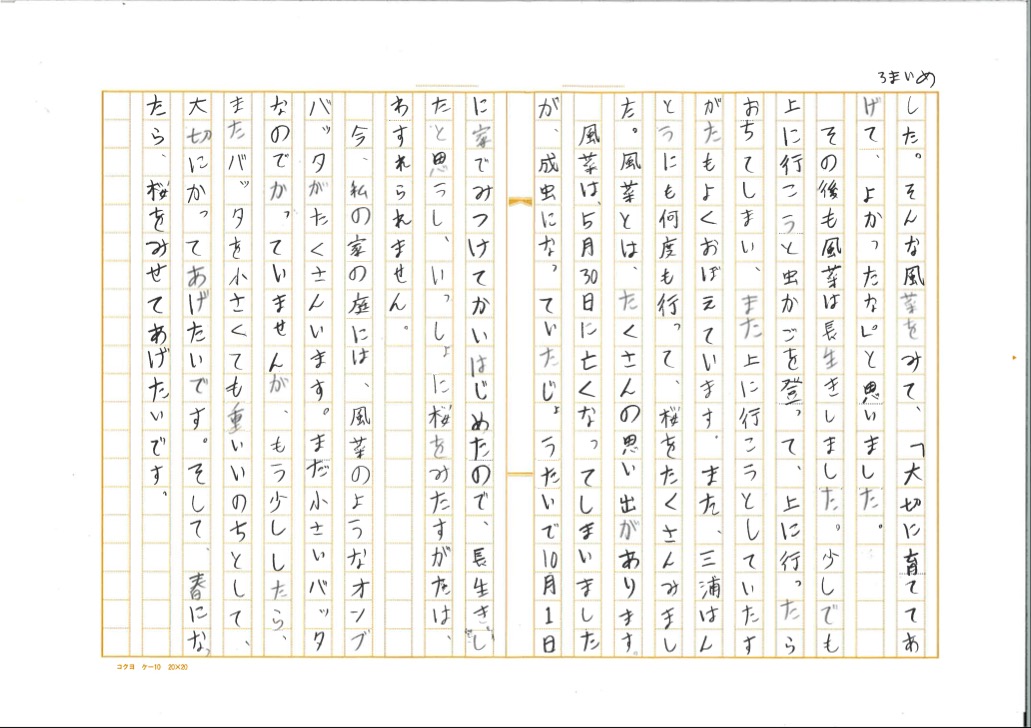 3まいめ
した。そんな風菜をみて、「大切に育ててあ
げて、よかったな。」と思いました。
その後も風菜は長生きしました。少しでも
上に行こうと虫かごを登って、上に行ったら
おちてしまい、また上に行こうとしていたす
がたもよくおぼえています。また、三浦はん
とうにも何度も行って、桜をたくさんみまし
た。風菜とは、たくさんの思い出があります。
風菜は、5月30日に亡くなってしまいました
が、成虫になっていたじょうたいで10月1日
に家でみつけてかいはじめたので、長生きし
たと思うし、いっしょに桜をみたすがたは、
わすれられません。
今、私の家の庭には、風菜のようなオンブ
バッタがたくさんいます。まだ小さいバッタ
なのでかっていませんが、もう少ししたら、
またバッタを小さくても重いいのちとして、
大切にかってあげたいです。そして、春にな
ったら、桜をみせてあげたいです。
コクヨ ケー10 20×20